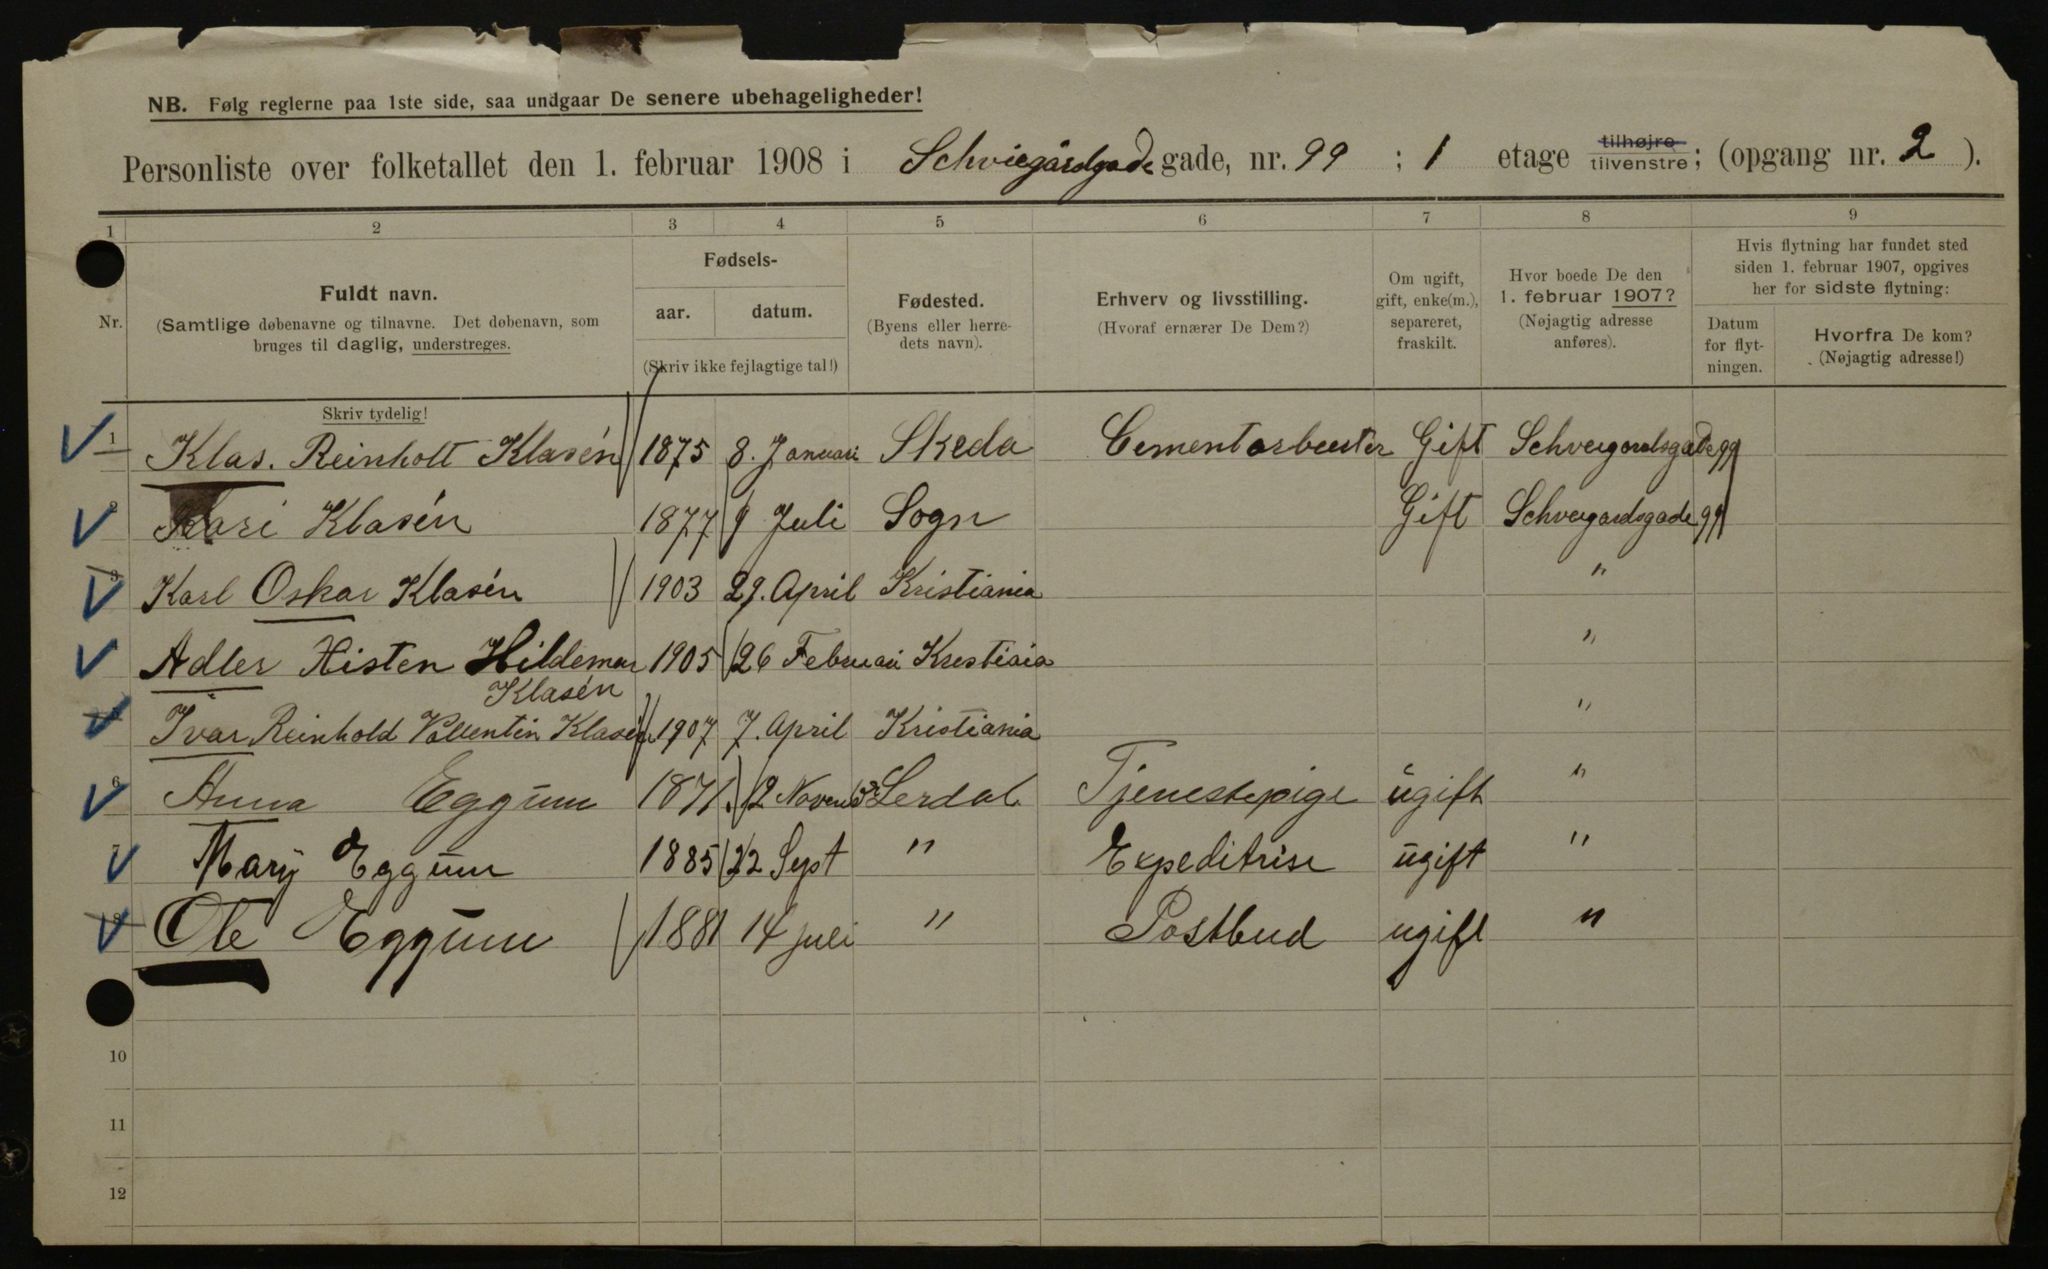 NB. Følg reglerne paa 1ste side, saa undgaar De senere ubehageligheder!
Personliste over folketallet den 1. februar 1908 i Schviegårdgade gade, nr. 99 ; 1 etage tilhøjre tilvenstre; (opgang nr. 2 ).
1 2 3 4 5 6 7 8 9
Nr.
Fuldt navn.
(Samtlige døbenavne og tilnavne. Det døbenavn, som
bruges til daglig, understreges.
Skriv tydelig!
Fødsels-
aar. datum.
(Skriv ikke fejlagtige tal!)
Fødested.
(Byens eller herre-
dets navn).
Erhverv og livsstilling.
(Hvoraf ernærer De Dem?)
Om ugift,
gift, enke(m.),
separeret,
fraskilt.
Hvor boede De den
1. februar 1907?
(Nøjagtig adresse
anføres).
Hvis flytning har fundet sted
siden 1. februar 1907, opgives
her for sidste flytning:
Datum
for flyt-
ningen.
Hvorfra De kom?
(Nøjagtig adresse!)
1 Klas. Reinholt Klasén 1875 8. Januari Skeda Cementarbeuter Gift Schveigardsgade 99
2 Kari Klasén 1877 9 Juli Sogn Gift Schveigardsgade 99
3 Karl Oskar Klasén 1903 29. April Kristiania "
Adler Histen Hildemar 1905 26 Februari Krestiaia "
Klasén
Ivar Reinhold Valentin Klasén 1907 7. April Kristiania "
6 Anna Eggum 1871 2 Novemb Lerdal Tjenestepige ugift "
7 Mary Eggum 1885 22 Sept " Expeditrise ugift "
8 Ole Eggum 1881 14 juli " Postbud ugift "
10
11
12